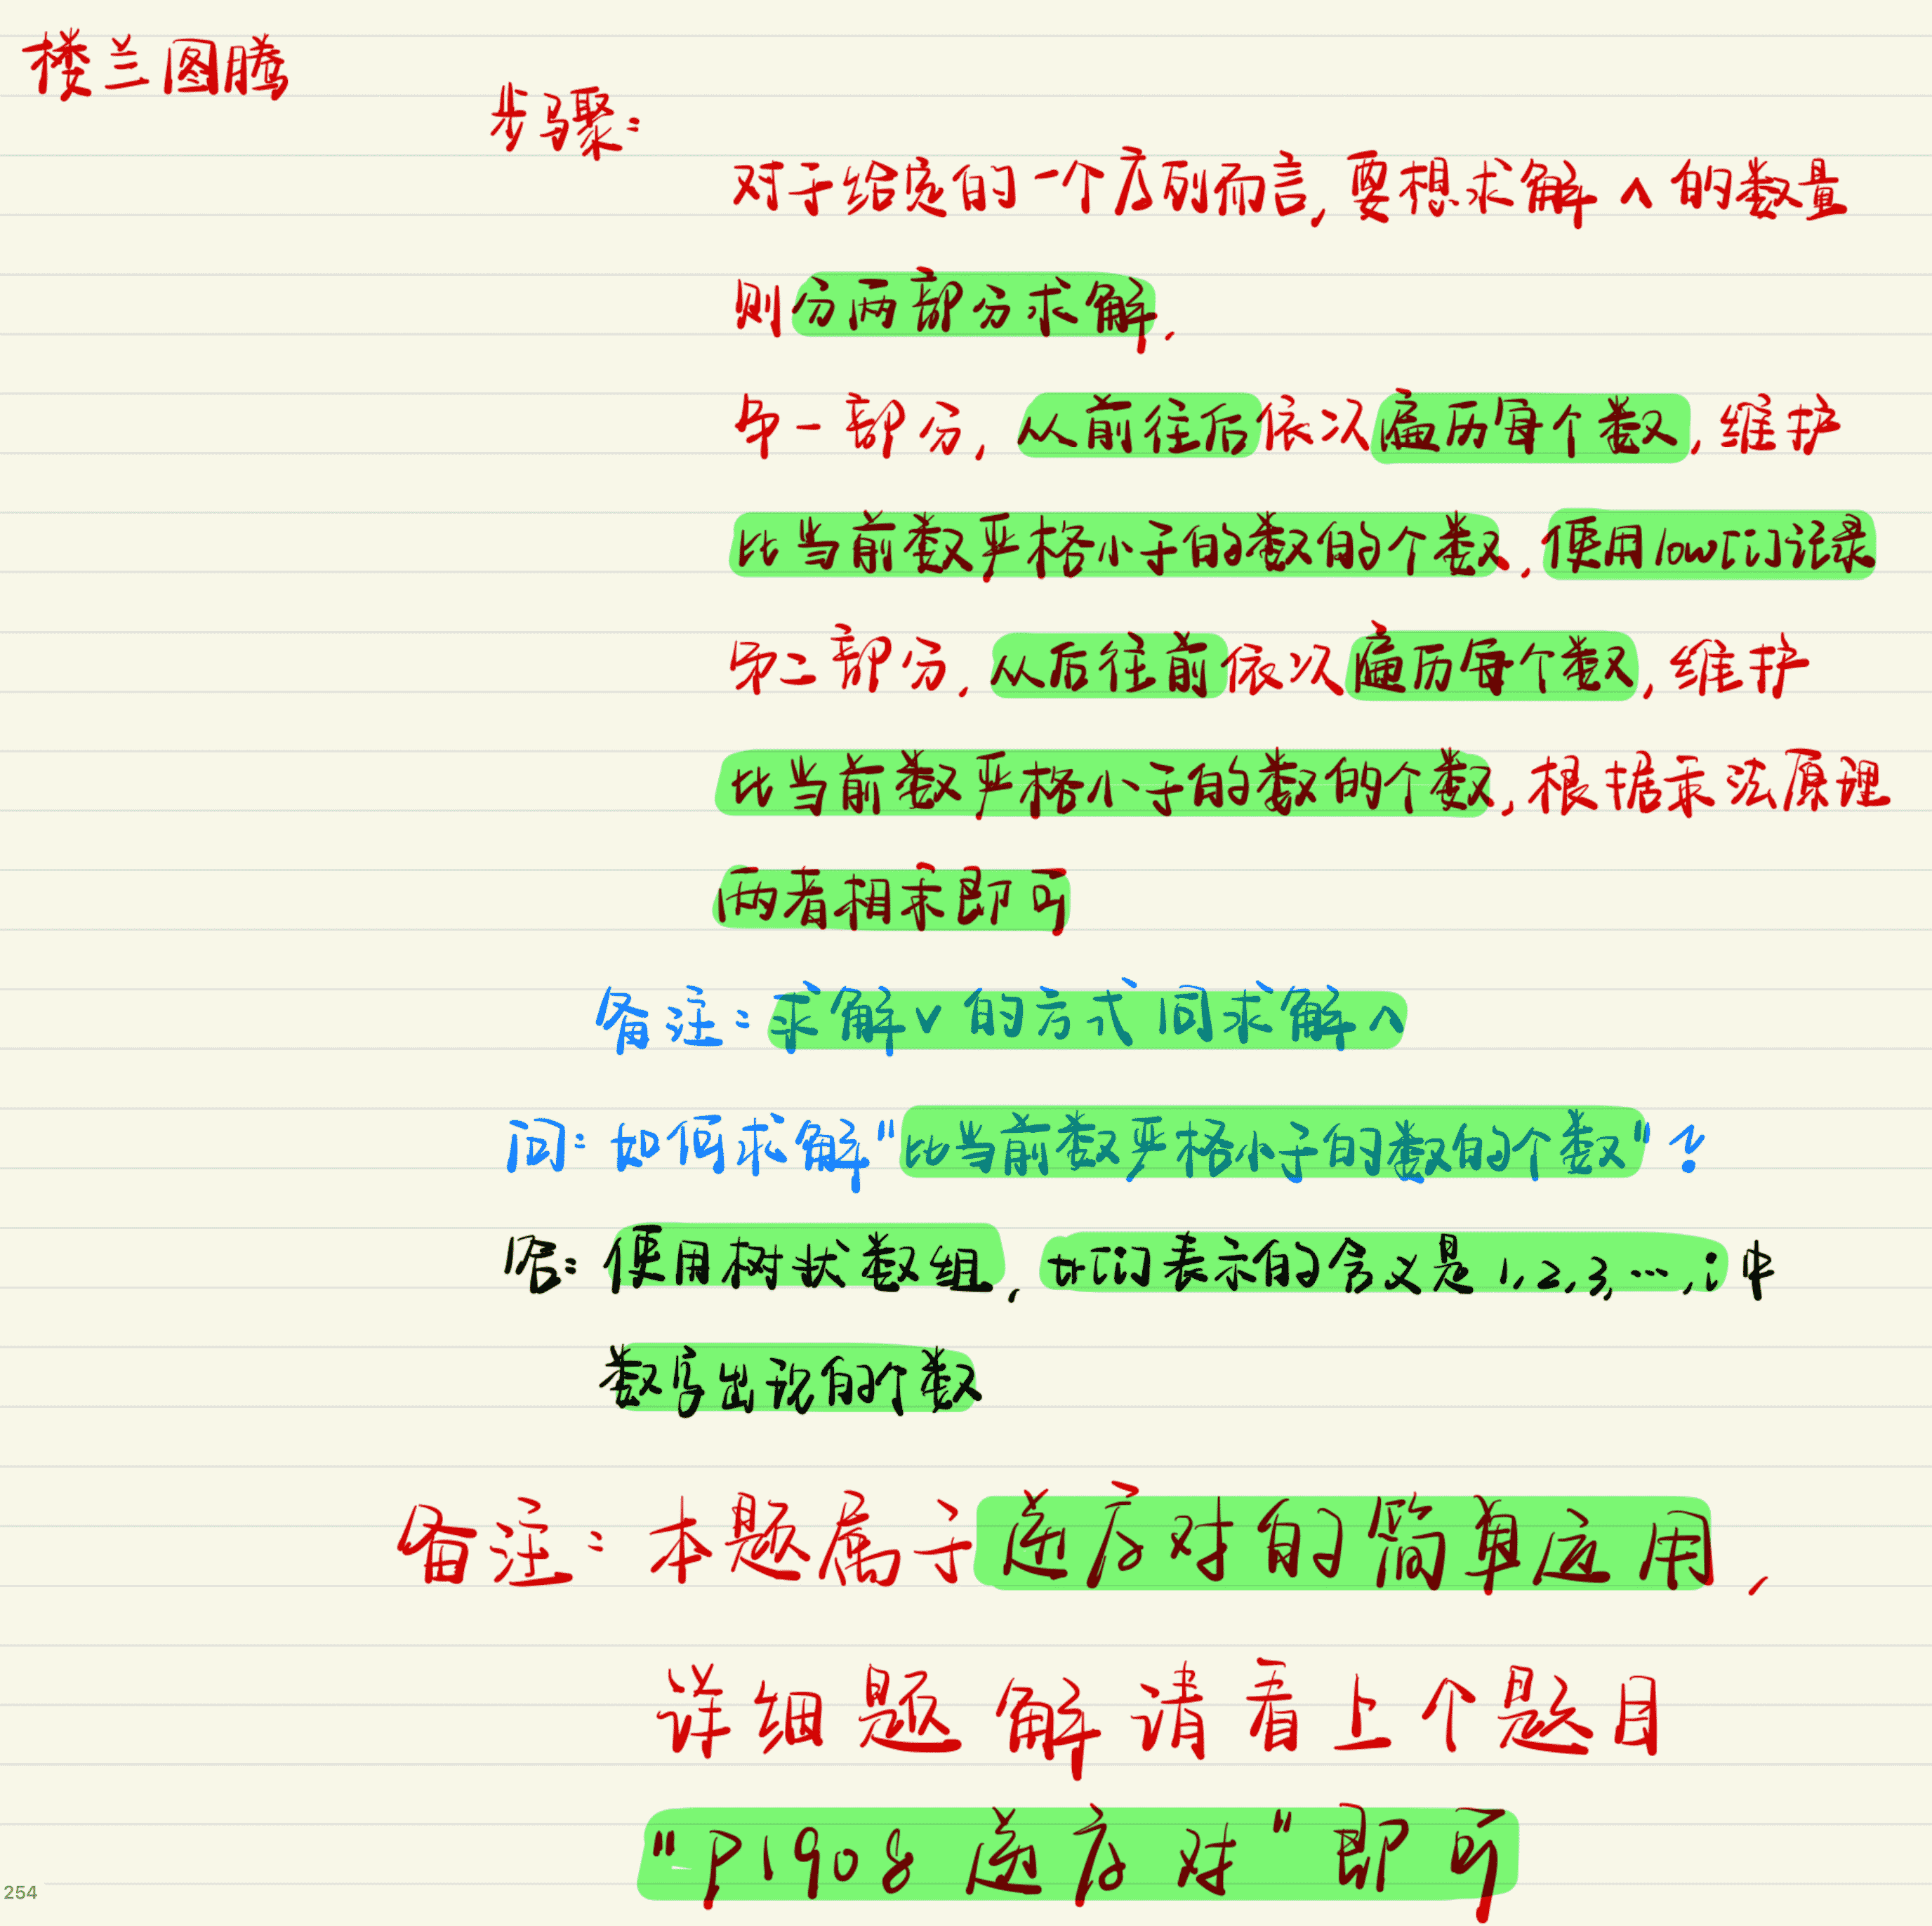 楼兰图腾
步骤:
对于给定的一个序列而言,要想求解 ∧ 的数量
则分两部分求解,
第一部分,从前往后依次遍历每个数,维护
比当前数严格小于的数的个数,使用low[i]记录
第二部分,从后往前依次遍历每个数,维护
比当前数严格小于的数的个数,根据乘法原理
两者相乘即可
备注:求解∨的方式同求解∧
问:如何求解"比当前数严格小于的数的个数"?
答:使用树状数组,tr[i]表示的含义是1,2,3,…,i中
数字出现的个数
备注:本题属于逆序对的简单应用,
详细题解请看上个题目
"P1908 逆序对"即可
254